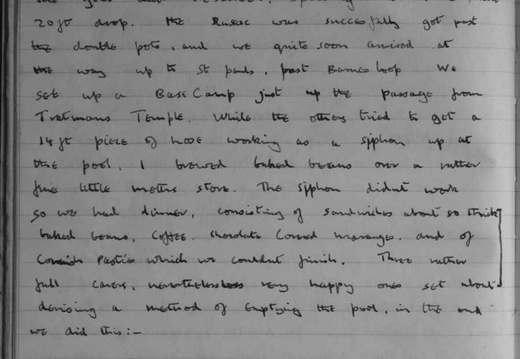 20ft drop. The Rusac was successfully got past
the double pots, and we quite soon arrived at
the way up to St pauls, past Barnes loop We
set up a Base Camp just up the passage from
Tratmans Temple. While the others tried to get a
14ft piece of hose working as a syphon up at
the pool, I brewed baked beans over a rather
fine little meths stove. The syphon didnt work
so we had dinner, consisting of sandwiches about so thick
baked beans, Coffee, chocolate Covered and of
Cornish Pasties which we couldnt finish. Three rather
full cavers, nevertheless very happy ones set about
devising a method of emptying the pool, in the end
we did this:-